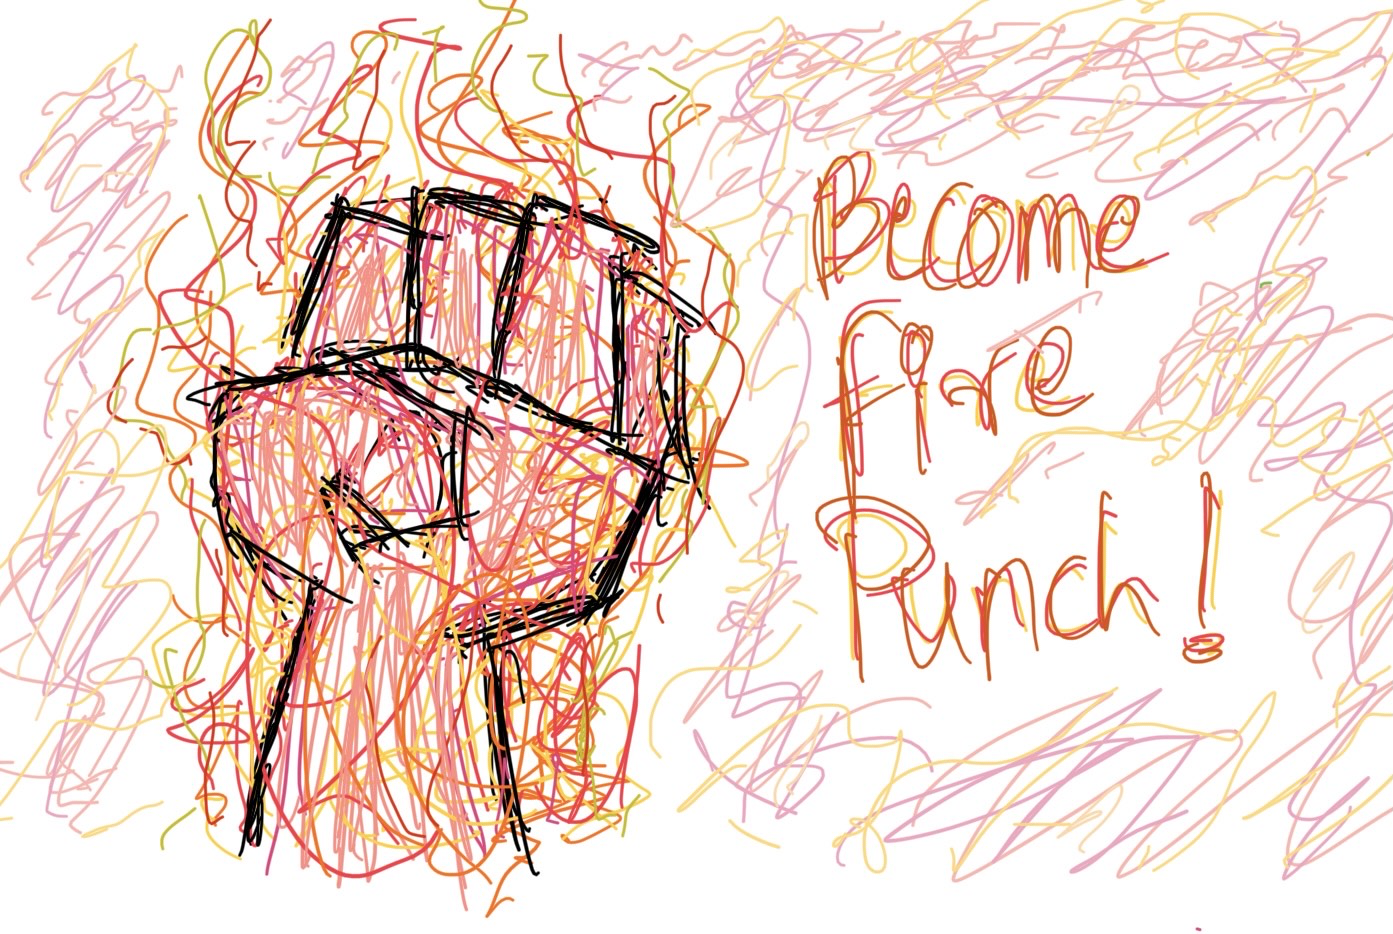 Become
fire
Punch!